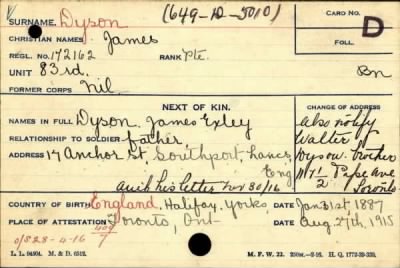 SURNAME. Dyson (649-D-5010) CARD NO.
CHRISTIAN NAMES James D
REGL. NO. 172162 RANK Pte. FOLL.
UNIT 83rd. Bn
FORMER CORPS Nil.
NEXT OF KIN. CHANGE OF ADDRESS
NAMES IN FULL Dyson James Exley Also notify
RELATIONSHIP TO SOLDIER father Walter
ADDRESS 17 Anchor St, Southport, Lancs, Dyson, brother
Eng 71½ Pape Ave
his letter Nov 30/16 Toronto
COUNTRY OF BIRTH England, Halifax, Yorks, DATE Jan 31st 1887
PLACE OF ATTESTATION Toronto, Ont. DATE Aug 27th, 1915
O/S28-4-16 409/7
L. L. 94904. M. & D. 6512. M. F. W. 22.